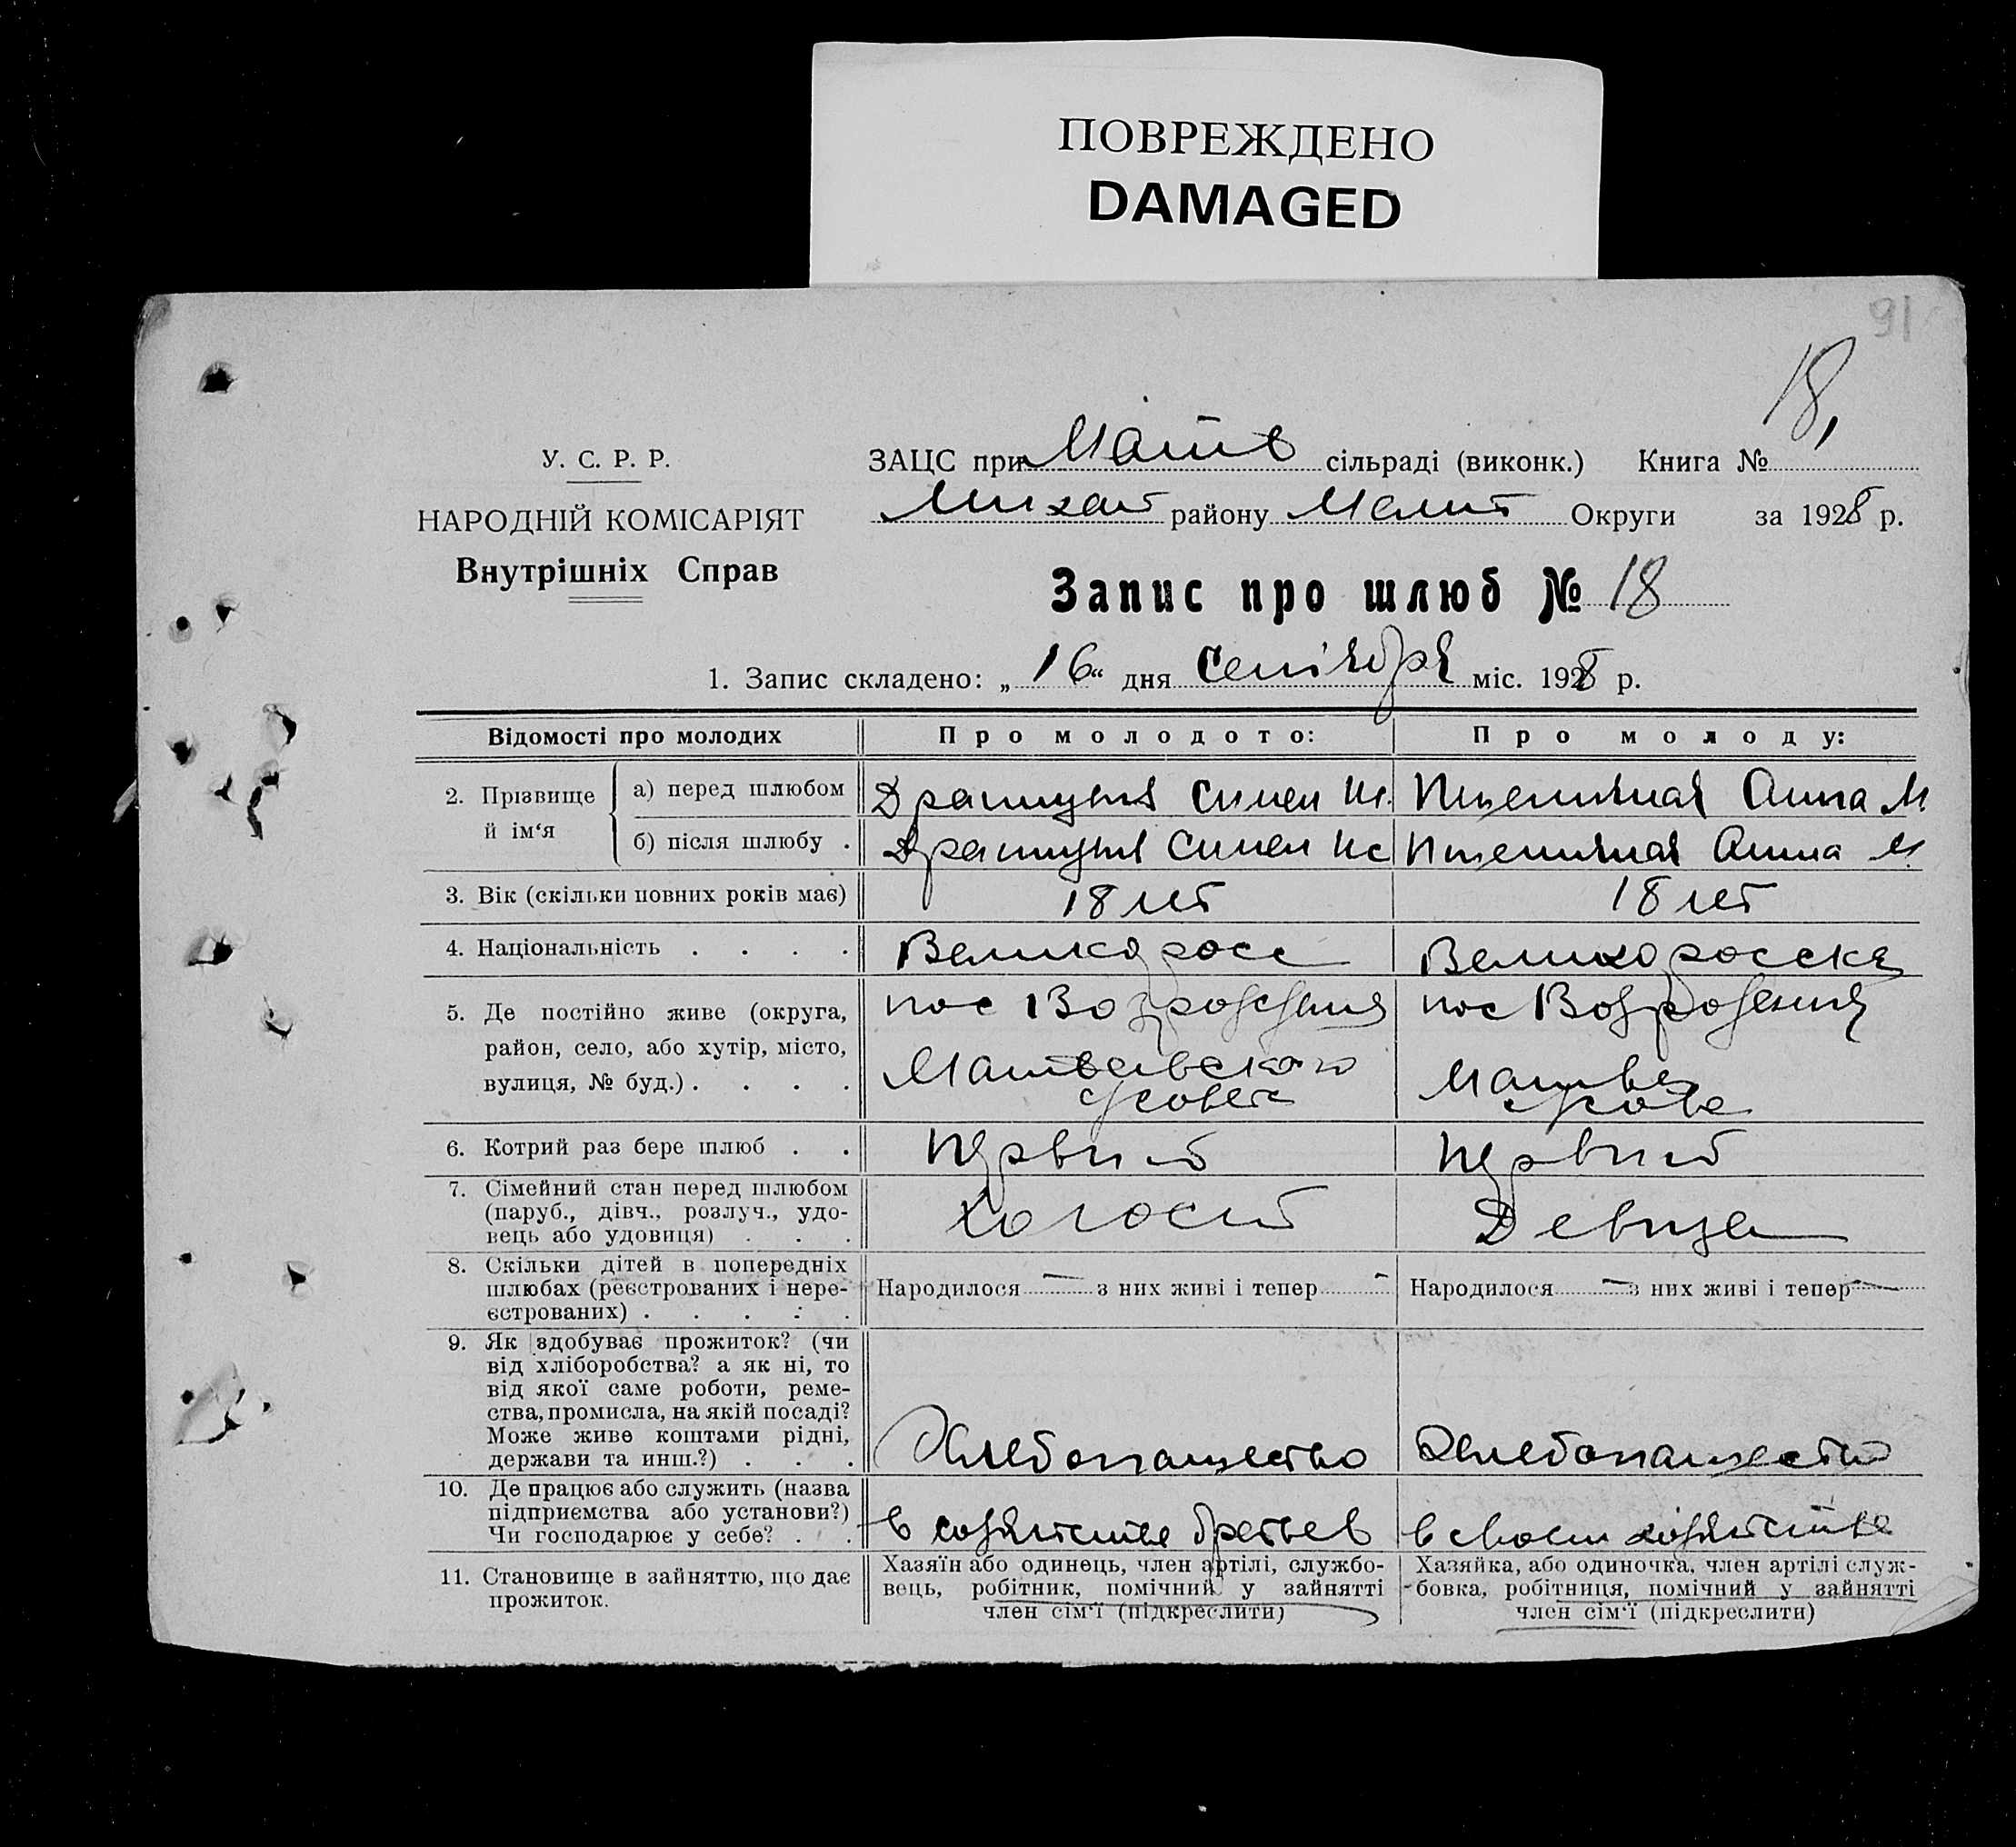 ПОВРЕЖДЕНО
DAMAGED
91
18,
У. С. Р. Р.
НАРОДНІЙ КОМІСАРІЯТ
Внутрішніх Справ
ЗАЦС при Матв сільраді (виконк.) Книга №
Михай району Мелит Округи за 1928 р.
Запис про шлюб № 18
1. Запис складено: „ 16 “ дня Сентября міс. 1928 р.
Відомості про молодих
Про молодого:
Про молоду:
2. Прізвище й ім‘я
а) перед шлюбом
Симен Ис.
Пшеничная Анна М
б) після шлюбу .
Симен Ис
Пшеничная Анна М.
3. Вік (скільки повних років має)
18 лет
18 лет
4. Національність . . . .
Великоросс
Великоросска
5. Де постійно живе (округа,
район, село, або хутір, місто,
вулиця, № буд.) . . . .
пос Возрождения
Матвеевского
с/совета
пос Возрожения
Матвее
с/сове
6. Котрий раз бере шлюб . .
первий
первий
7. Сімейний стан перед шлюбом
(паруб., дівч., розлуч., удо-
вець або удовиця) . . .
Холост
Девица
8. Скільки дітей в попередніх
шлюбах (реєстрованих і нере-
єстрованих) . . . . .
Народилося — з них живі і тепер —
Народилося — з них живі і тепер —
9. Як здобуває прожиток? (чи
від хліборобства? а як ні, то
від якої саме роботи, реме-
ства, промисла, на якій посаді?
Може живе коштами рідні,
держави та инш.?) . . .
Хлебопашество
Хлебопашество
10. Де працює або служить (назва
підприємства або установи?)
Чи господарює у себе? . .
в хозяйстве братьев
в своем хозяйстве
11. Становище в зайняттю, що дає
прожиток.
Хазяїн або одинець, член артілі, службо-
вець, робітник, помічний у зайнятті
член сім‘ї (підкреслити)
Хазяйка, або одиночка, член артілі служ-
бовка, робітниця, помічний у зайнятті
член сім‘ї (підкреслити)